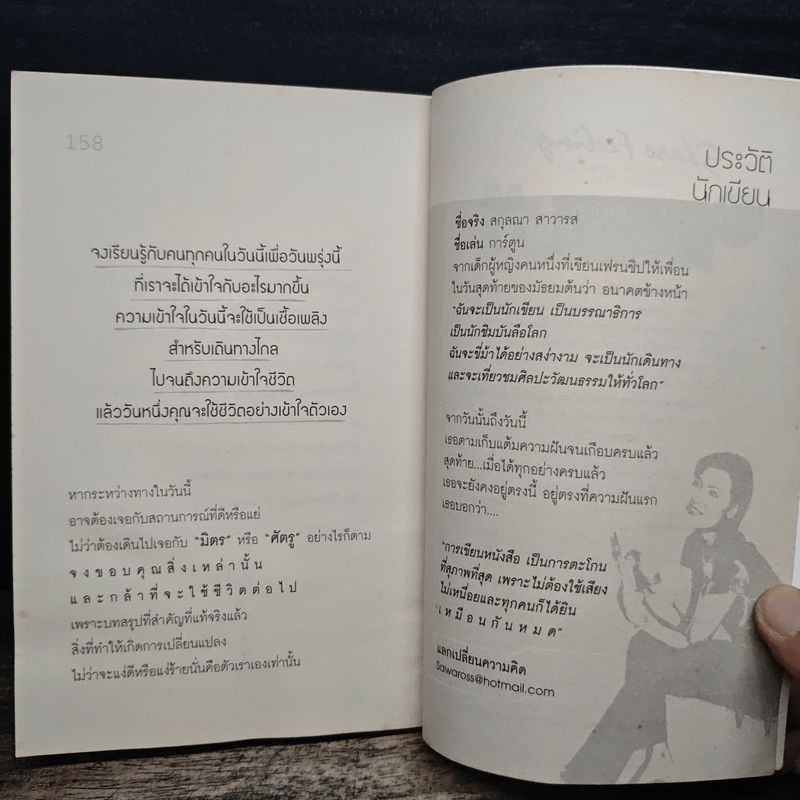 158
จงเรียนรู้กับคนทุกคนในวันนี้เพื่อวันพรุ่งนี้
ที่เราจะได้เข้าใจกับอะไรมากขึ้น
ความเข้าใจในวันนี้จะใช้เป็นเชื้อเพลิง
สำหรับเดินทางไกล
ไปจนถึงความเข้าใจชีวิต
แล้ววันหนึ่งคุณจะใช้ชีวิตอย่างเข้าใจตัวเอง
หากระหว่างทางในวันนี้
อาจต้องเจอกับสถานการณ์ที่ดีหรือแย่
ไม่ว่าต้องเดินไปเจอกับ "มิตร" หรือ "ศัตรู" อย่างไรก็ตาม
จงขอบคุณสิ่งเหล่านั้น
และกล้าที่จะใช้ชีวิตต่อไป
เพราะบทสรุปที่สำคัญที่แท้จริงแล้ว
สิ่งที่ทำให้เกิดการเปลี่ยนแปลง
ไม่ว่าจะแง่ดีหรือแง่ร้ายนั่นคือตัวเราเองเท่านั้น
ประวัติ
นักเขียน
ชื่อจริง สกุลณา สาวารส
ชื่อเล่น การ์ตูน
จากเด็กผู้หญิงคนหนึ่งที่เขียนเฟรนชิปให้เพื่อน
ในวันสุดท้ายของมัธยมต้นว่า อนาคตข้างหน้า
"ฉันจะเป็นนักเขียน เป็นบรรณาธิการ
เป็นนักชิมบันลือโลก
ฉันจะขี่ม้าได้อย่างสง่างาม จะเป็นนักเดินทาง
และจะเที่ยวชมศิลปะวัฒนธรรมให้ทั่วโลก"
จากวันนั้นถึงวันนี้
เธอตามเก็บแต้มความฝันจนเกือบครบแล้ว
สุดท้าย...เมื่อได้ทุกอย่างครบแล้ว
เธอจะยังคงอยู่ตรงนี้ อยู่ตรงที่ความฝันแรก
เธอบอกว่า....
"การเขียนหนังสือ เป็นการตะโกน
ที่สุภาพที่สุด เพราะไม่ต้องใช้เสียง
ไม่เหนื่อยและทุกคนก็ได้ยิน
เหมือนกันหมด"
แลกเปลี่ยนความคิด
Sawaross@hotmail.com